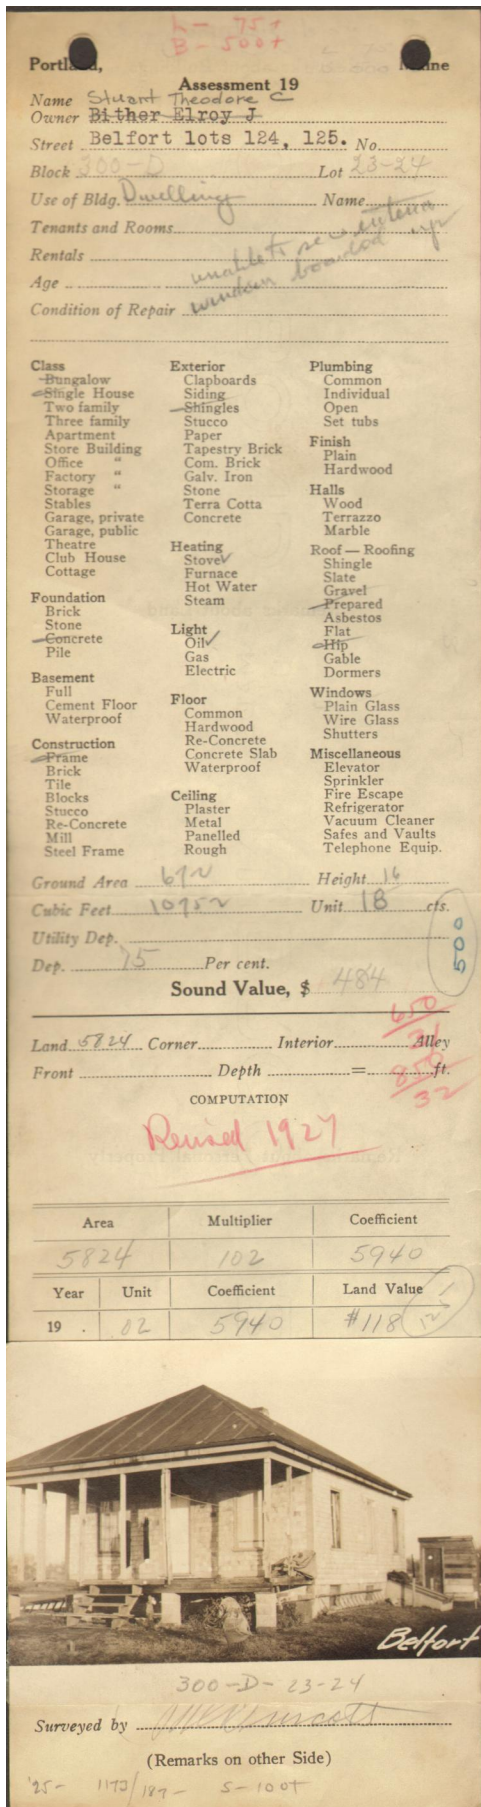 L - 75+
B - 500+
Portland, Maine
Assessment 19
Name Stuart Theodore C
Owner Bither Elroy J
Street Belfort lots 124, 125. No
Block 300-D Lot 23-24
Use of Bldg. Dwelling Name
Tenants and Rooms
Rentals
unable to see interior
Age
windows boarded up
Condition of Repair
Class
Bungalow
Single House
Two family
Three family
Apartment
Store Building
Office "
Factory "
Storage "
Stables
Garage, private
Garage, public
Theatre
Club House
Cottage
Foundation
Brick
Stone
Concrete
Pile
Basement
Full
Cement Floor
Waterproof
Construction
Frame
Brick
Tile
Blocks
Stucco
Re-Concrete
Mill
Steel Frame
Exterior
Clapboards
Siding
Shingles
Stucco
Paper
Tapestry Brick
Com. Brick
Galv. Iron
Stone
Terra Cotta
Concrete
Heating
Stove
Furnace
Hot Water
Steam
Light
Oil
Gas
Electric
Floor
Common
Hardwood
Re-Concrete
Concrete Slab
Waterproof
Ceiling
Plaster
Metal
Panelled
Rough
Plumbing
Common
Individual
Open
Set tubs
Finish
Plain
Hardwood
Halls
Wood
Terrazzo
Marble
Roof — Roofing
Shingle
Slate
Gravel
Prepared
Asbestos
Flat
Hip
Gable
Dormers
Windows
Plain Glass
Wire Glass
Shutters
Miscellaneous
Elevator
Sprinkler
Fire Escape
Refrigerator
Vacuum Cleaner
Safes and Vaults
Telephone Equip.
Ground Area 672 Height 16
Cubic Feet 10752 Unit 18 cts.
Utility Dep.
500
Dep. 75 Per cent.
Sound Value, $ 484
650
Land 5824 Corner Interior Alley
850
Front Depth = ft.
32
COMPUTATION
Revised 1927
Area Multiplier Coefficient
5824 102 5940
Year Unit Coefficient Land Value
19 . 02 5940 #118
Belfort
300-D-23-24
Surveyed by
(Remarks on other Side)
'25- 1173/187- S-100+